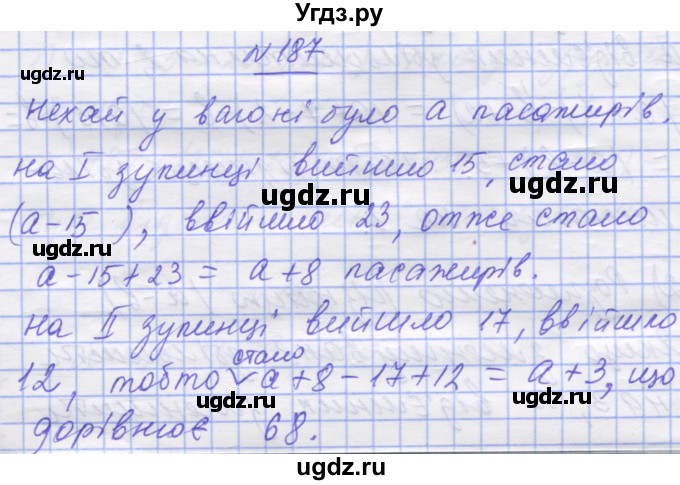 Угдз.ру
N 187
ugdz.ru ugdz.ru
Нехай у вагоні було a пасажирів.
На I зупинці вийшло 15, стало
ugdz.ru
(a-15), ввійшло 23, отже стало
ugdz.ru ugdz.ru
a-15+23 = a+8 пасажирів.
ugdz.ru
На II зупинці вийшло 17, ввійшло
стало
12, тобто a+8-17+12 = a+3, що
ugdz.ru ugdz.ru
дорівнює 68.
ugdz.ru
ugdz.ru